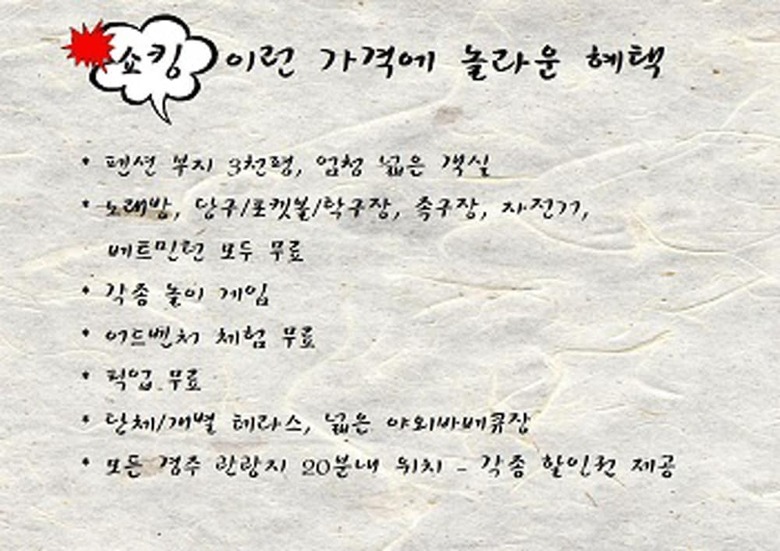 쇼킹 이런 가격에 놀라운 혜택
* 펜션 부지 3천평, 엄청 넓은 객실
* 노래방, 당구/포켓볼/탁구장, 족구장, 자전거,
베트민턴 모두 무료
* 각종 놀이 게임
* 어드벤처 체험 무료
* 픽업 무료
* 단체/개별 테라스, 넓은 야외바베큐장
* 모든 경주 관광지 20분내 위치 - 각종 할인권 제공